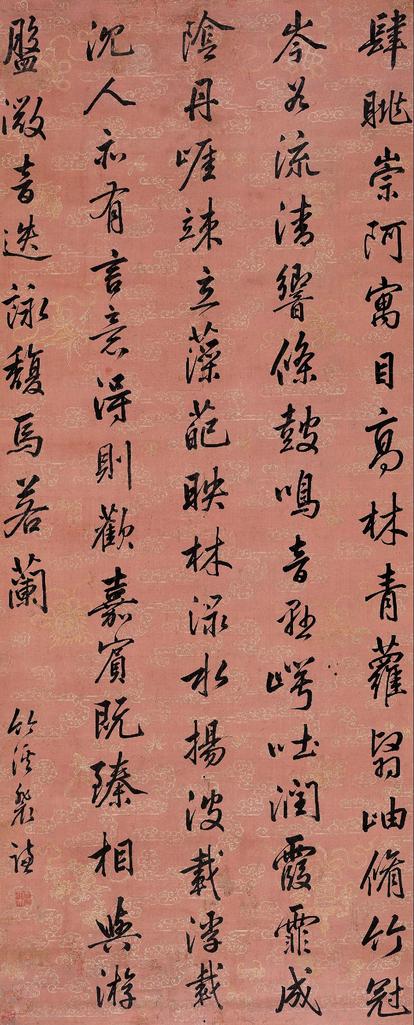 肆眺崇阿寓目高林青蘿翳岫脩竹冠
岑谷流清響條鼓鳴音玄崿吐潤霞霏成
陰丹崖竦立藻葩映林淥水揚波載浮載
沈人亦有言意得則歡嘉賓既臻相與游
盤微音迭詠馥焉若蘭
竹溪